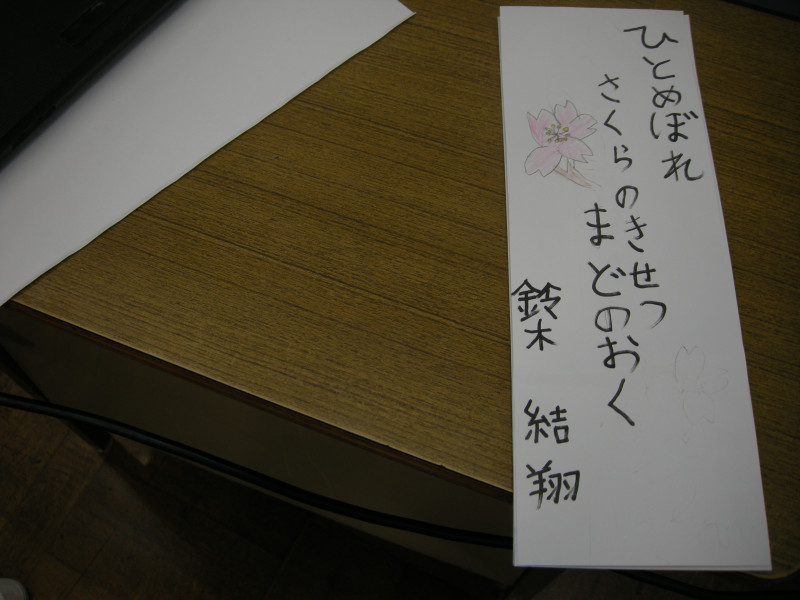 ひとめぼれ
さくらのきせつ
まどのおく
鈴木 結翔